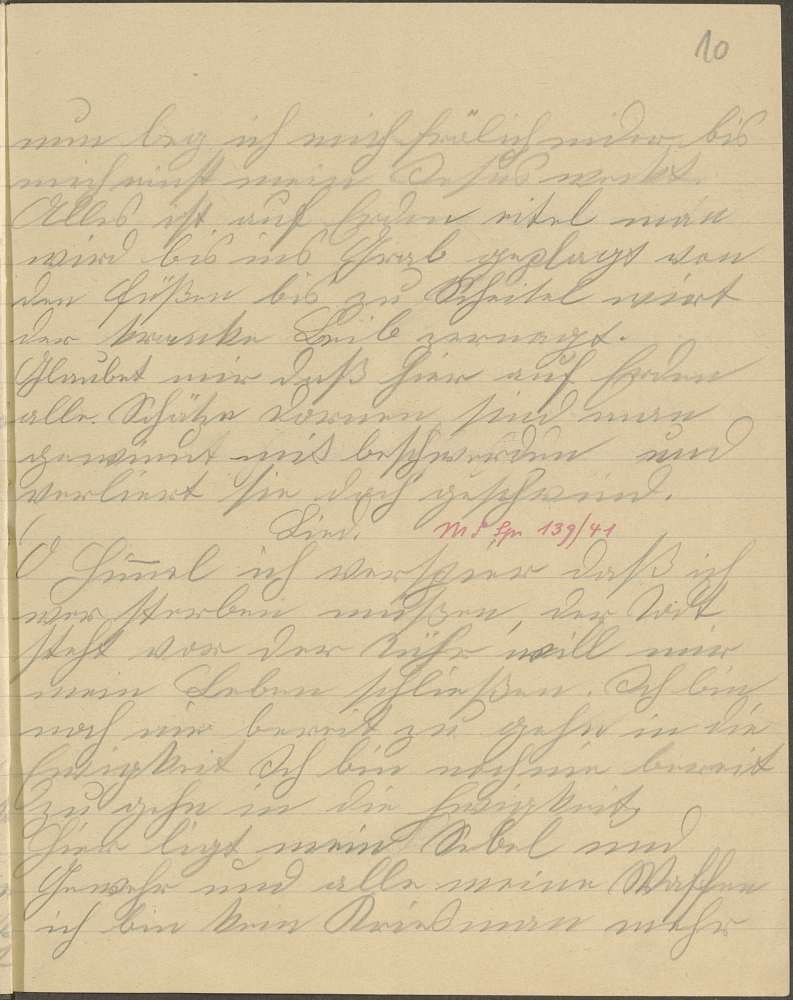 10
nun leg ich mich frölich nider bis
mich einst mein Jesus weckt.
Alles ist auf Erden eitel man
wird bis ins Grab geplagt von
den Füßen bis zu Scheitel wirt
der krancke Leib zernagt.
Glaubet mir daß hier auf Erden
alle Schätze Dornen sind man
gewinnt mit beschwerden und
verliert sie doch geschwind.
Lied. 139/41
O Himmel ich verspier daß ich
wer sterben müßen, der Todt
steht vor der Tühr will mir
mein Leben schließen. Ich bin
noch nie bereit zu gehn in die
Ewigkeit Ich bin noch nie bereit
zu gehn in die Ewigkeit
Hier ligt mein Sebel und
Gewehr und alle meine Waffen
ich bin kein Krießman mehr